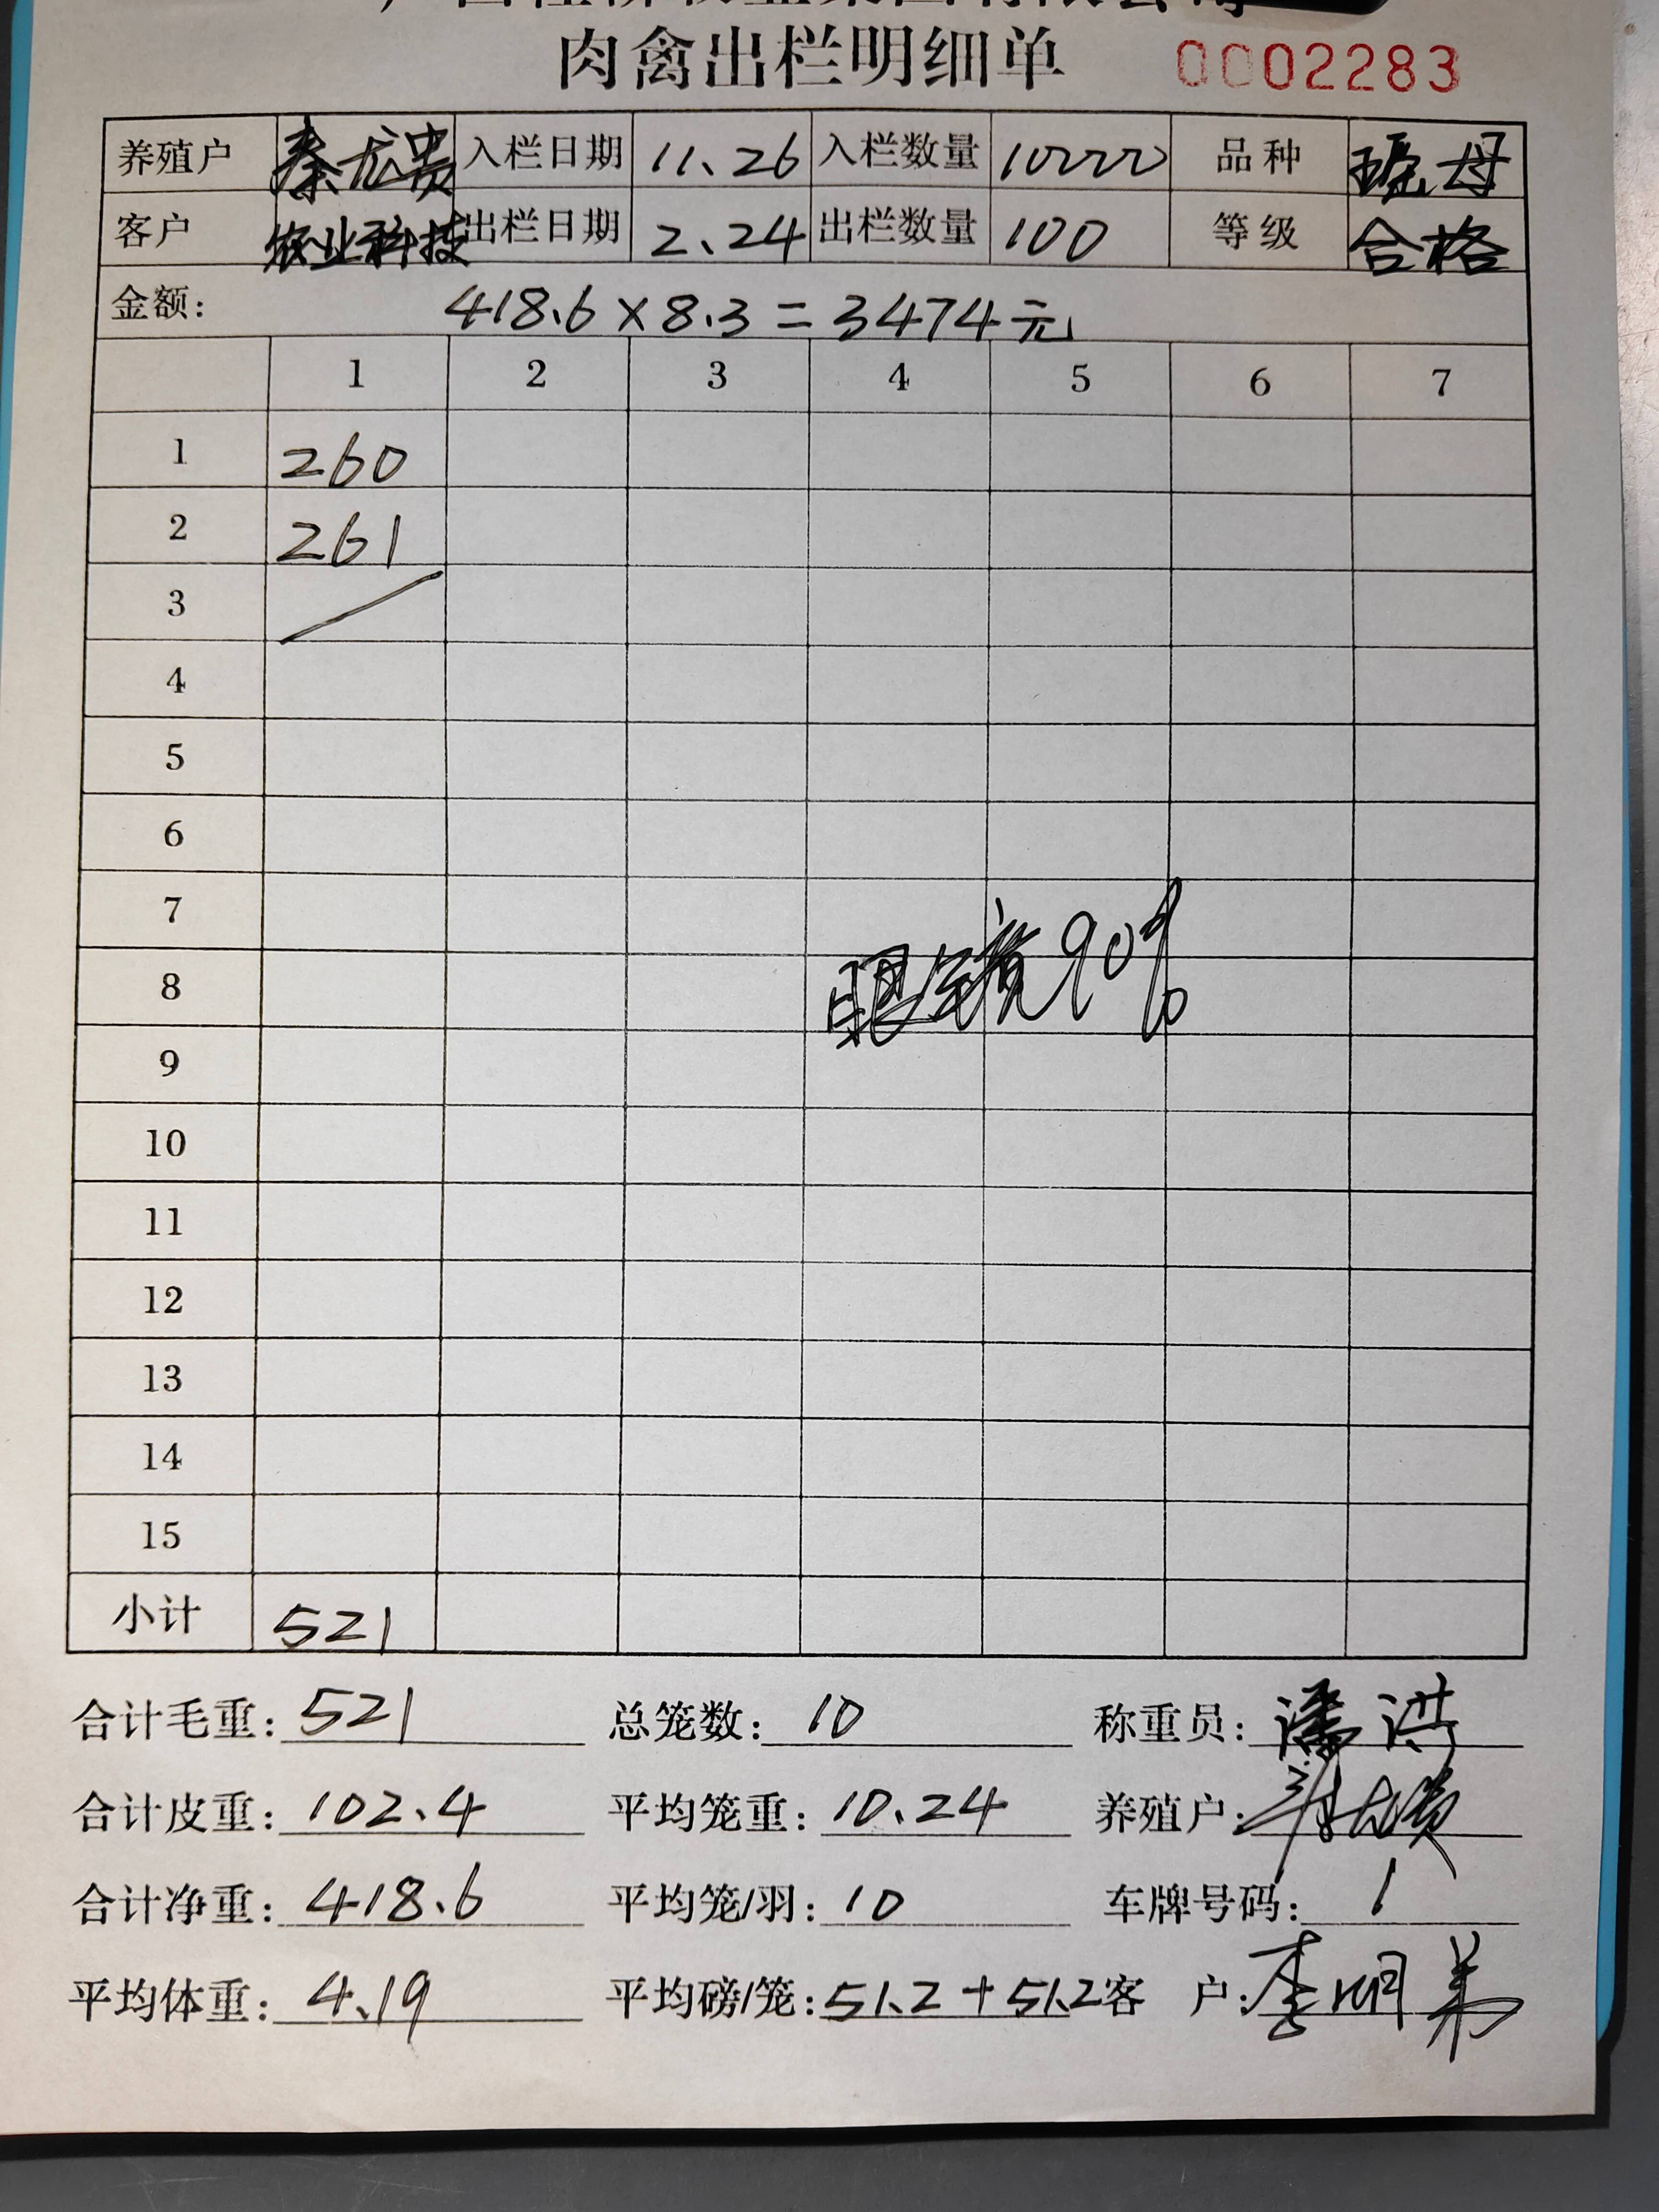 肉禽出栏明细单 0002283
养殖户 秦尤贵 入栏日期 11.26 入栏数量 10000 品种 瑶母
客户 农业科技 出栏日期 2.24 出栏数量 100 等级 合格
金额: 418.6×8.3=3474元
1 2 3 4 5 6 7
1 260
2 261
3
4
5
6
7
8 眼镜90%
9
10
11
12
13
14
15
小计 521
合计毛重: 521 总笼数: 10 称重员: 潘洪
合计皮重: 102.4 平均笼重: 10.24 养殖户: 秦尤贵
合计净重: 418.6 平均笼/羽: 10 车牌号码: 1
平均体重: 4.19 平均磅/笼: 51.2+51.2 客户: 李明弟